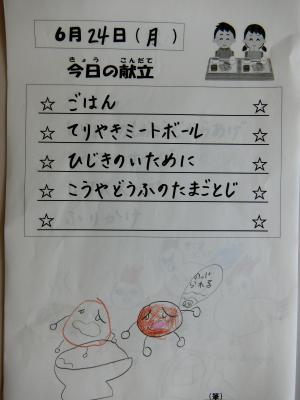 6月24日(月)
きょう こんだて
今日の献立
☆ ごはん ☆
☆ てりやきミートボール ☆
☆ ひじきのいために ☆
☆ こうやどうふのたまごとじ ☆
☆ ☆
(筆)